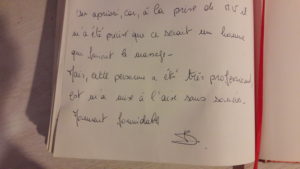 un apriori, car, à la prise de RV il
m'a été précisé que ce serait un homme
qui faisait le massage.
Mais, cette personne a été très professionnel
est m'a mis à l'aise sans soucis.
Moment formidable